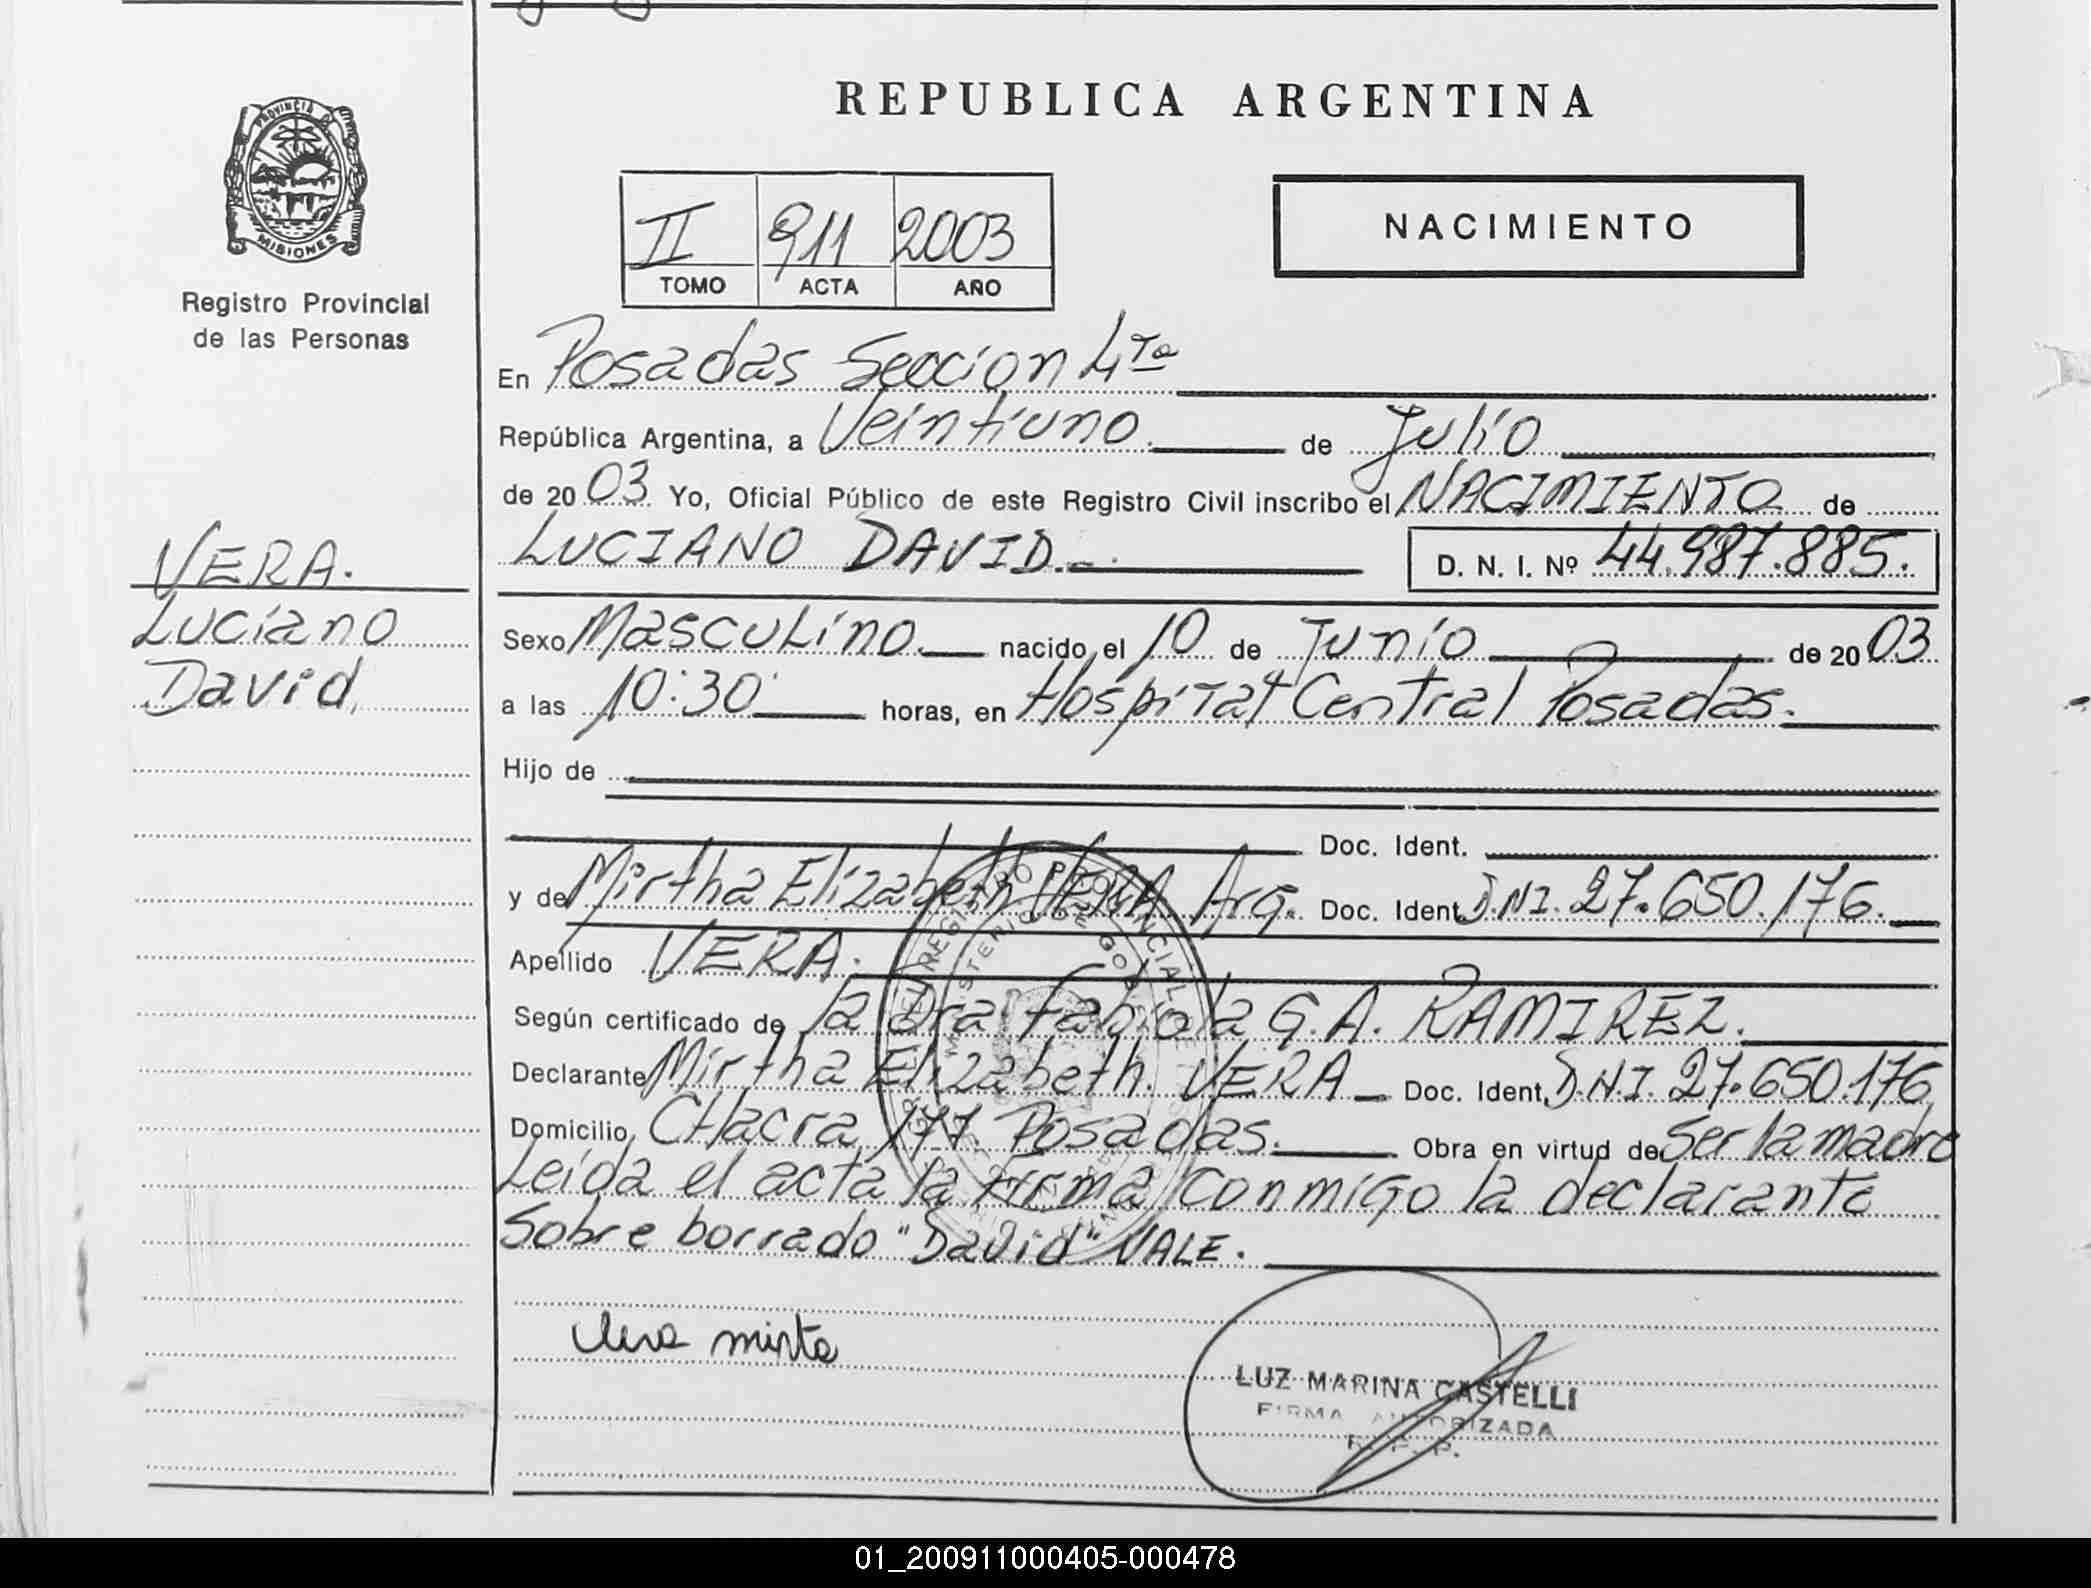 REPUBLICA ARGENTINA
PROVINCIA DE
MISIONES
Registro Provincial
de las Personas
II 911 2003
TOMO ACTA AÑO
NACIMIENTO
En Posadas Seccion 4ta
República Argentina, a Veintiuno. de Julio
de 20 03 Yo, Oficial Público de este Registro Civil inscribo el NACIMIENTO de
LUCIANO DAVID. D. N. I. Nº 44.987.885.
VERA.
Luciano
David.
Sexo Masculino. nacido el 10 de Junio de 20 03
a las 10:30 horas, en Hospital Central Posadas.
Hijo de
Doc. Ident.
y de Mirtha Elizabeth VERA Arg. Doc. Ident. D.N.I. 27.650.176.
Apellido VERA.
Según certificado de la Dra. Fabiola G.A. RAMIREZ.
Declarante Mirtha Elizabeth. VERA Doc. Ident. D.N.I. 27.650.176
Domicilio CHacra 177 Posadas. Obra en virtud de Ser la madre
Leida el acta la firma Conmigo la declarante
Sobre borrado "David" VALE.
Vera mirta
LUZ MARINA CASTELLI
FIRMA AUTORIZADA
R. P. P.
01_200911000405-000478